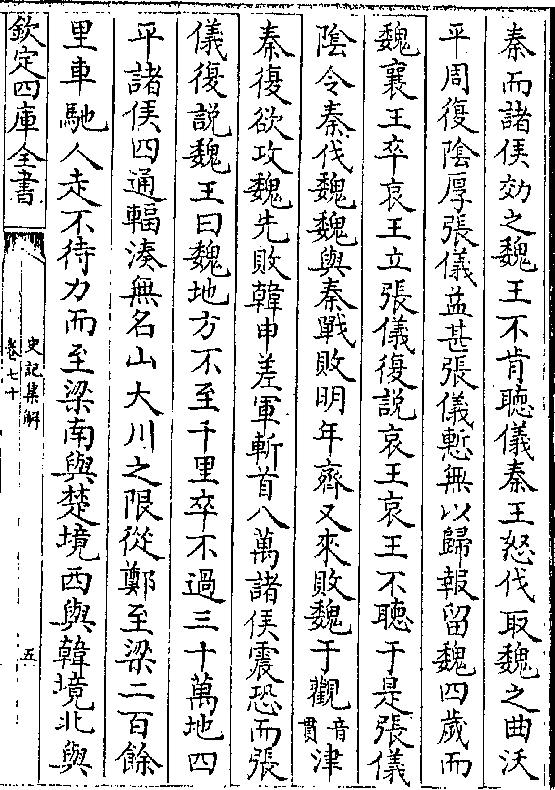 秦而諸侯効之魏王不肯聽儀秦王怒伐取魏之曲沃
平周復陰厚張儀益甚張儀慙無以歸報留魏四歲而
魏襄王卒哀王立張儀復説哀王哀王不聽于是張儀
陰令秦伐魏魏與秦戰敗明年齊又來敗魏于觀音貫津
秦復欲攻魏先敗韓申差軍斬首八萬諸侯震恐而張
儀復説魏王曰魏地方不至千里卒不過三十萬地四
平諸侯四通輻湊無名山大川之限從鄭至梁二百餘
里車馳人走不待力而至梁南與楚境西與韓境北與
欽定四庫全書
史記集解
卷七十
五